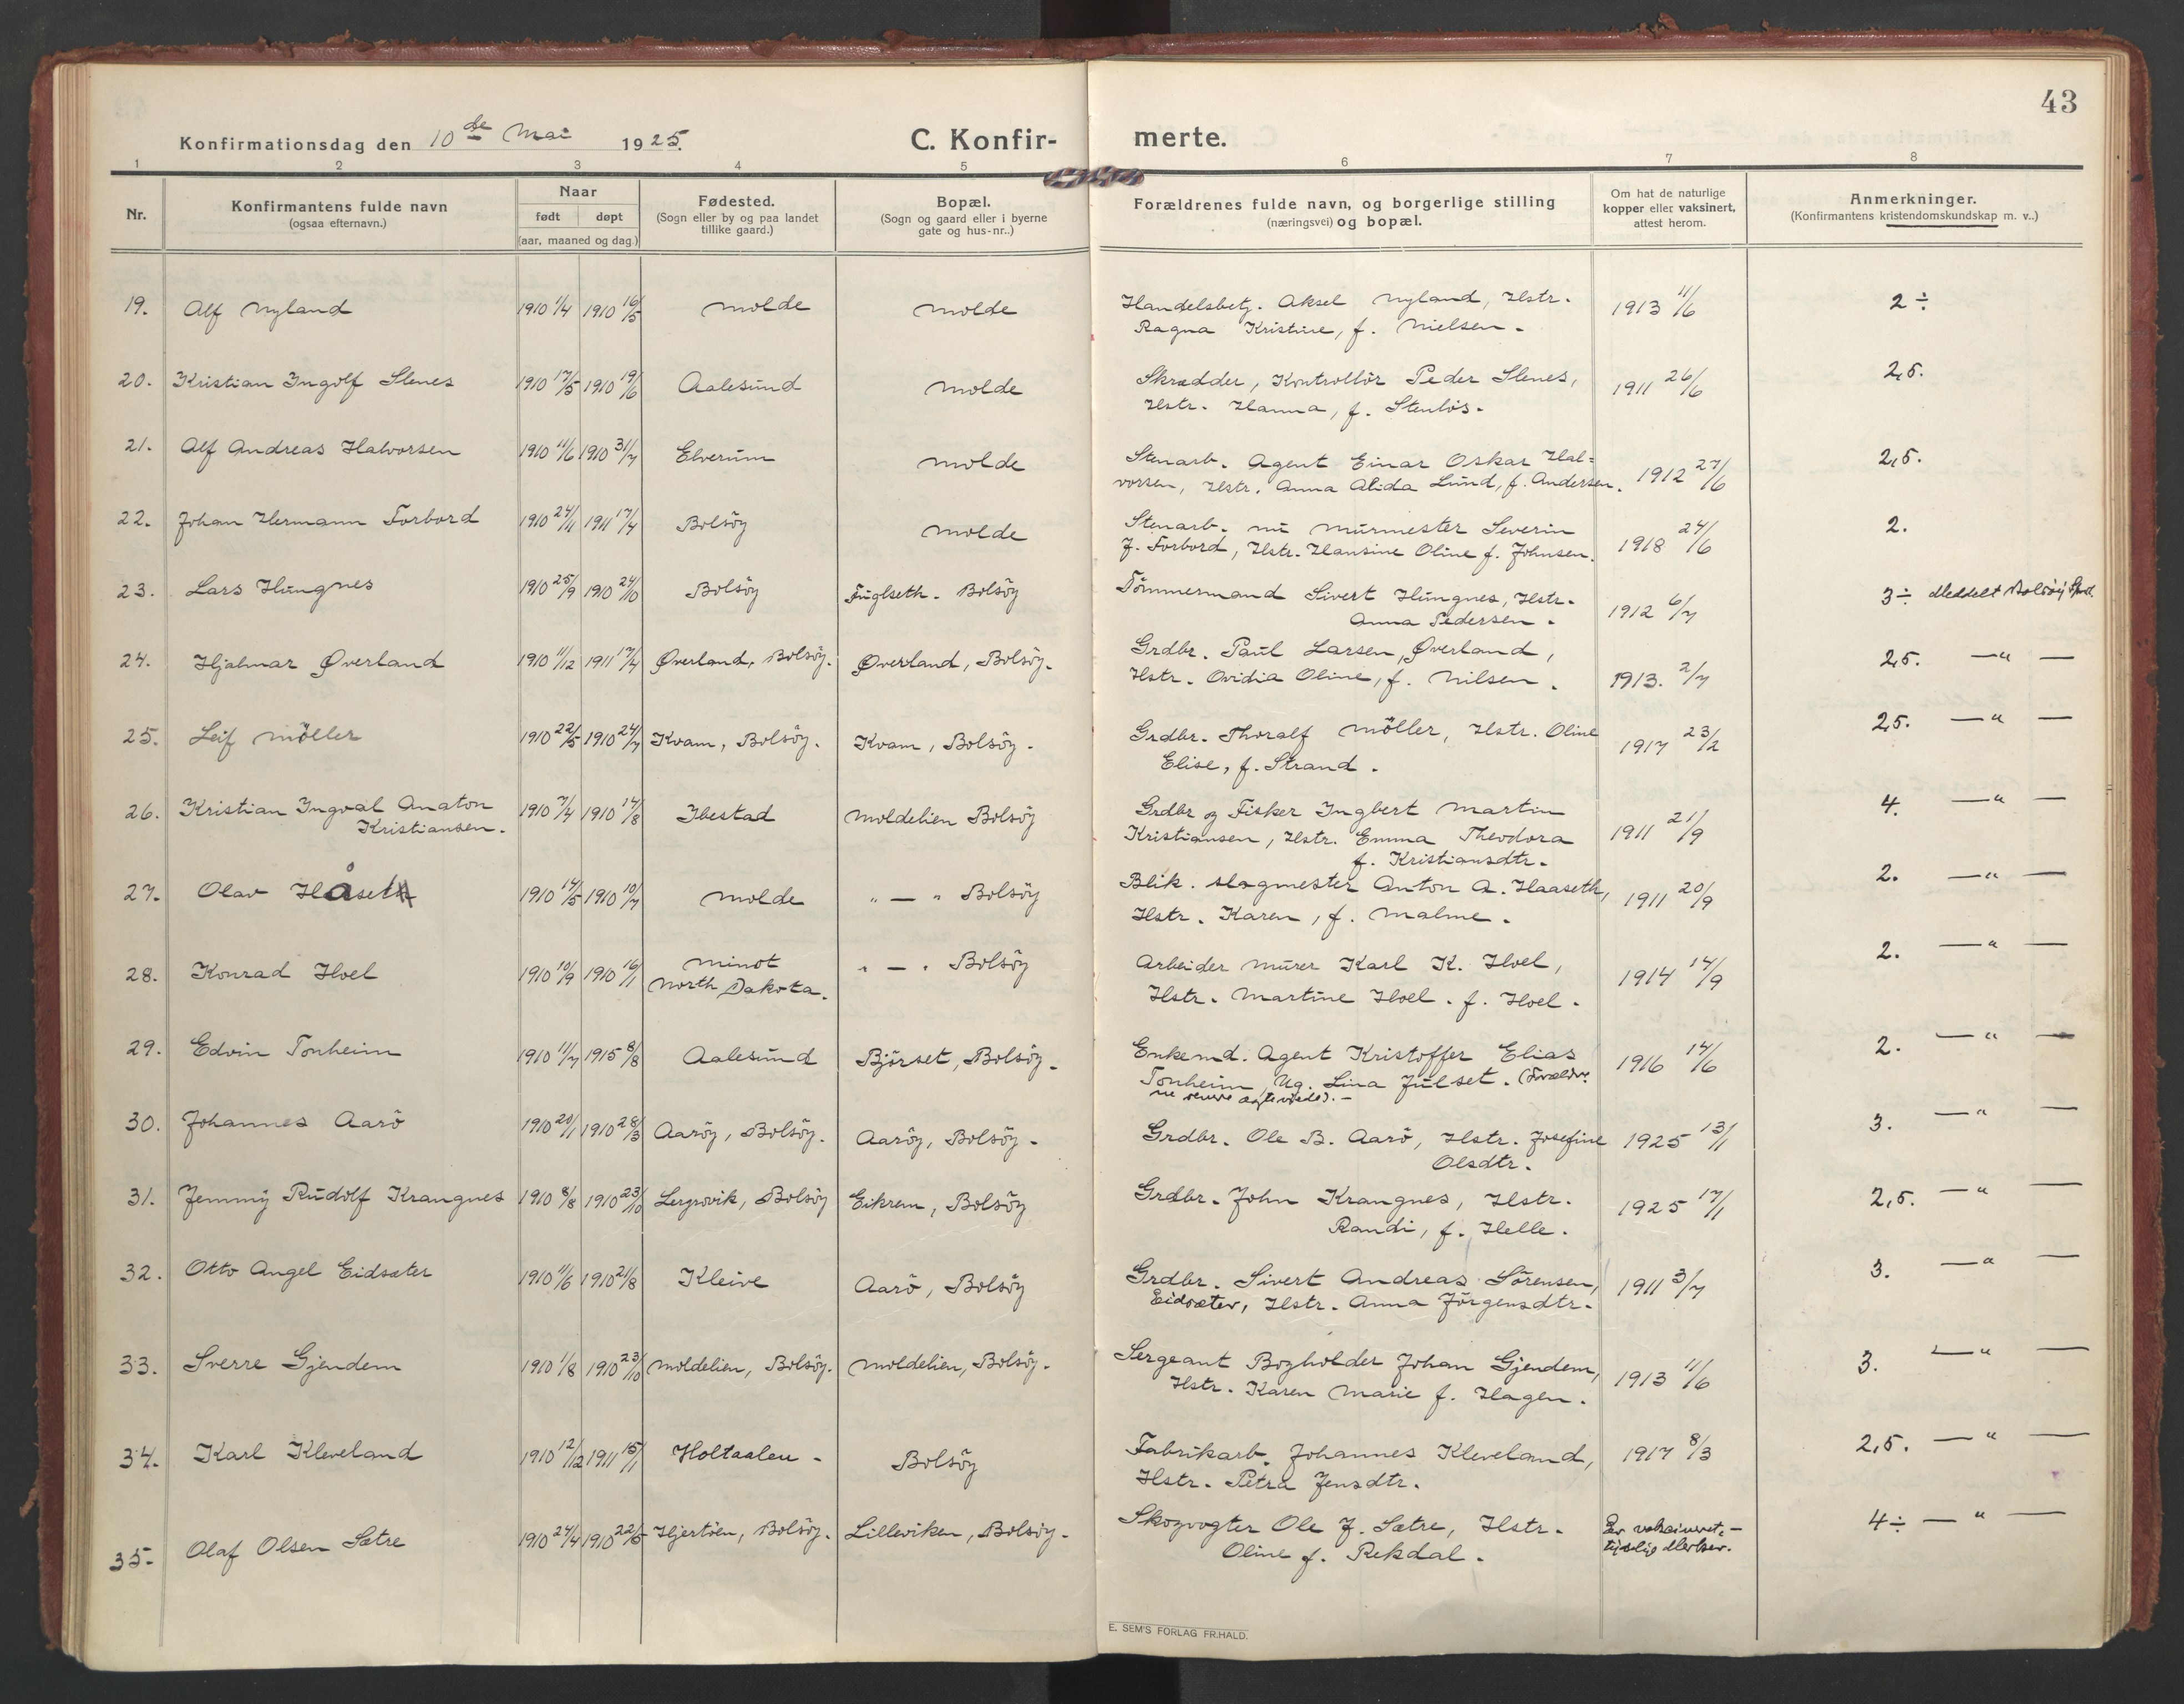 43
Konfirmationsdag den 10de Mai 1925. C. Konfir- merte.
1 2 3 4 5 6 7 8
Nr.
Konfirmantens fulde navn
(ogsaa efternavn.)
Naar
født døpt
(aar, maaned og dag.)
Fødested.
(Sogn eller by og paa landet
tillike gaard.)
Bopæl.
(Sogn og gaard eller i byerne
gate og hus-nr..)
Forældrenes fulde navn, og borgerlige stilling
(næringsvei) og bopæl.
Om hat de naturlige
kopper eller vaksinert,
attest herom.
Anmerkninger.
(Konfirmantens kristendomskundskap m. v..)
19. Alf Nyland 1910 1/4 1910 16/5 Molde Molde Handelsbetj. Aksel Nyland, Hstr. 1913 11/6 2÷
Ragna Kristine, f. Nielsen.
20. Kristian Ingolf Stenes 1910 17/5 1910 19/6 Aalesund Molde Skrædder, Kontrollör Peder Stenes, 1911 26/6 2,5.
Hstr. Hanna, f. Stenlös.
21. Alf Andreas Halvorsen 1910 11/6 1910 31/7 Elverum Molde Stenarb. Agent Einar Oskar Hal= 1912 27/6 2,5.
vorsen, Hstr. Anna Alida Lund, f. Andersen.
22. Johan Hermann Forbord 1910 24/11 1911 17/4 Bolsöy Molde Stenarb. nu Murmester Severin 1918 24/6 2.
J. Forbord, Hstr. Hansine Oline f. Johnsen.
23. Lars Hungnes 1910 25/9 1910 24/10 Bolsöy Fuglseth. Bolsöy Tömmermand Sivert Hungnes, Hstr. 1912 6/7 3÷ Meddelt Bolsöy Spr.
Anna Pedersen.
24. Hjalmar Øverland 1910 11/12 1911 17/4 Øverland, Bolsöy. Øverland, Bolsöy. Grdbr. Paul Larsen, Øverland, 1913. 2/7 2,5. — " —
Hstr. Ovidia Oline, f. Nilsen.
25. Leif Möller 1910 22/5 1910 24/7 Kvam, Bolsöy. Kvam, Bolsöy. Grdbr. Thoralf Möller, Hstr. Oline 1917 23/2 2,5. — " —
Elise, f. Strand.
26. Kristian Ingval Anaton 1910 7/4 1910 14/8 Ibestad Moldelien Bolsöy Grdbr og Fisker Ingbert Martin 1911 21/9 4. — " —
Kristiansen. Kristiansen, Hstr. Emma Theodora
f. Kristiansdtr.
27. Olav Håseth 1910 14/5 1910 10/7 Molde " — " Bolsöy Blik. slagmester Anton A. Haaseth, 1911 20/9 2. — " —
Hstr. Karen, f. Malme.
28. Konrad Hoel 1910 10/9 1910 16/1 Minot " — " Bolsöy Arbeider Murer Karl K. Hoel, 1914 14/9 2. — " —
North Dakota. Hstr. Martine Hoel. f. Hoel.
29. Edvin Tonheim 1910 11/7 1915 8/8 Aalesund Björset, Bolsöy. Enkemd. Agent Kristoffer Elias 1916 14/6 2. — " —
Tonheim, Ug. Lina Julset. (Forældre
ne senere ægteviede).
30. Johannes Aarö 1910 20/1 1910 28/3 Aaröy, Bolsöy. Aaröy, Bolsöy. Grdbr. Ole B. Aarö, Hstr. Josefine 1925 13/1 3. — " —
Olsdtr.
31. Jemmy Rudolf Krangnes 1910 8/8 1910 23/10 Lergrovik, Bolsöy Eikrem, Bolsöy Grdbr. John Krangnes, Hstr. 1925 17/1 2,5. — " —
Randi, f. Helle.
32. Otto Angel Eidsæter 1910 11/6 1910 21/8 Kleive Aarö, Bolsöy Grdbr. Sivert Andreas Sörensen, 1911 3/7 3. — " —
Eidsæter, Hstr. Anna Jörgensdtr.
33. Sverre Gjendem 1910 1/8 1910 23/10 Moldelien, Bolsöy. Moldelien, Bolsöy. Sergeant Bogholder Johan Gjendem, 1913 11/6 3. — " —
Hstr. Karen Marie f. Hagen.
34. Karl Kleveland 1910 12/12 1911 15/1 Holtaalen. Bolsöy Fabrikarb. Johannes Kleveland, 1917 8/3 2,5. — " —
Hstr. Petra Jensdtr.
35. Olaf Olsen Sætre 1910 24/4 1910 22/5 Hjertöen, Bolsöy. Lilleviken, Bolsöy. Skogvogter Ole J. Sætre, Hstr. Er vaksineret, 4÷ — " —
Oline f. Rekdal. tydelig Merker.
E. SEM'S FORLAG FR.HALD.